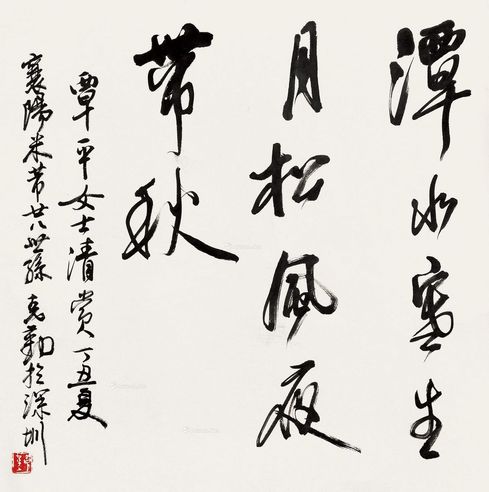 潭水寒生
月松風夜
帶秋
覃平女士清賞丁丑夏
襄陽米芾廿八世孫克勤於深圳